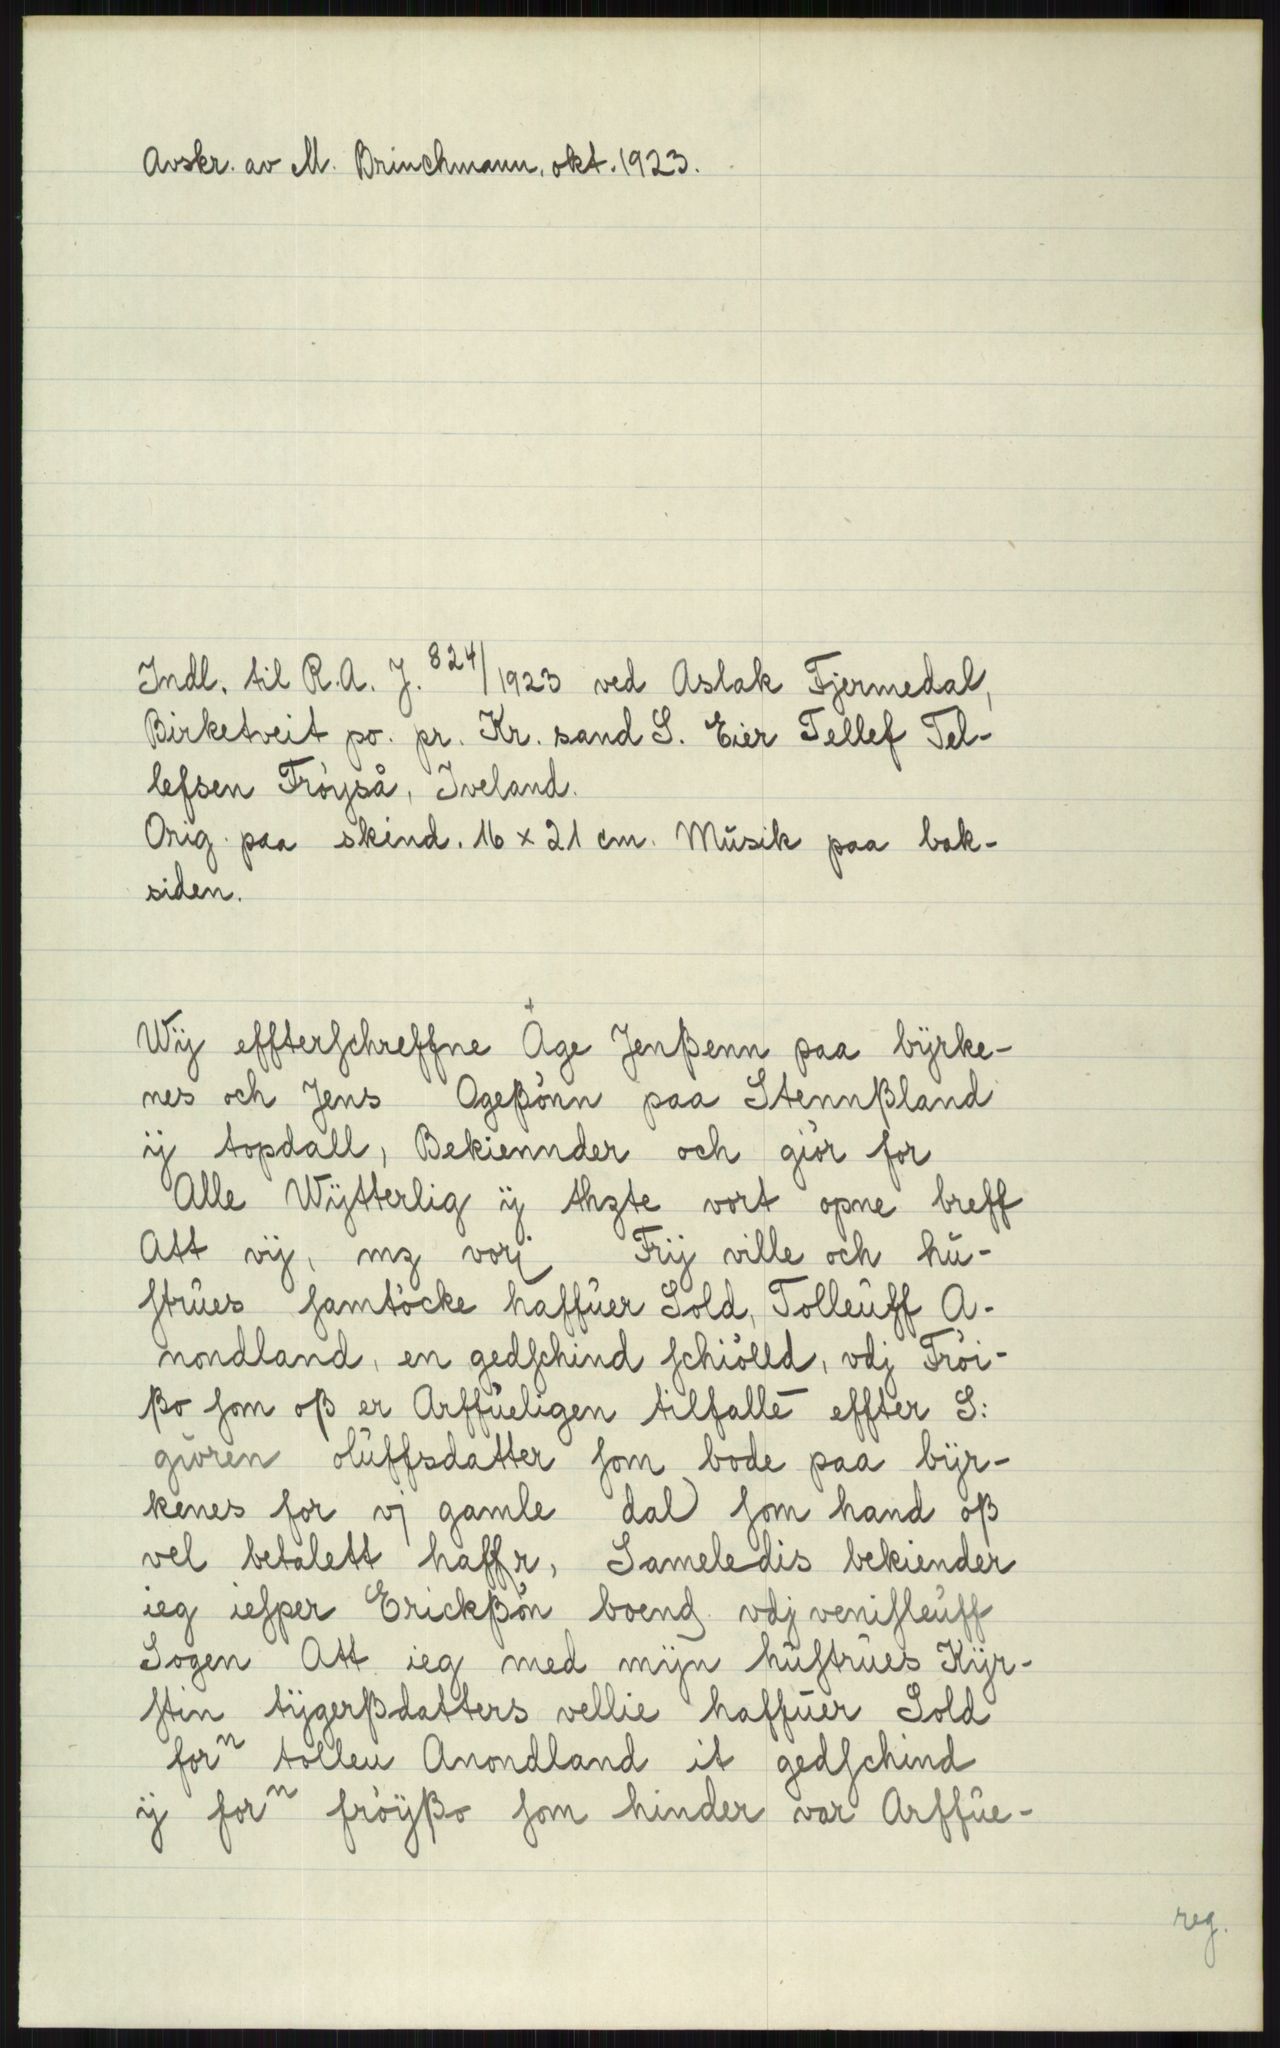 Avskr. av M. Brinchmann, okt. 1923.
Indl. til R.A. J. 824/1923 ved Aslak Fjermedal,
Birketveit po. pr. Kr. sand S. Eier Tellef Tel-
lefsen Frøyså, Iveland.
Orig. paa skind. 16 x 21 cm. Musik paa bak-
siden.
Wÿ effterschreffne Åge Jenßenn paa bÿrke-
nes och Jens Ogeßönn paa Stennßland
ÿ topdall, Bekiennder och giör for
Alle Wÿtterlig ÿ thzte vort opne breff
Att vÿ, mz vorj Frÿ ville och hu-
strues samtöcke haffuer Sold, Tolleuff A-
nondland, en gedschind schiölld, vdj Fröi-
ßo som oß er Arffueligen tilfallē effter S:
guren oluffsdatter som bode paa bÿr-
kenes for vj gamle dal som hand oß
vel betalett haffr, Sameledis bekiender
ieg iesper Erickßön boend vdj venisleuff
Sogen Att ieg med mÿn hustrues Kÿr-
stin tÿgerßdatters vellie haffuer Sold
forn tolleu Anondland it gedschind
ÿ forn fröÿßo som hinder var Arffue-
reg.